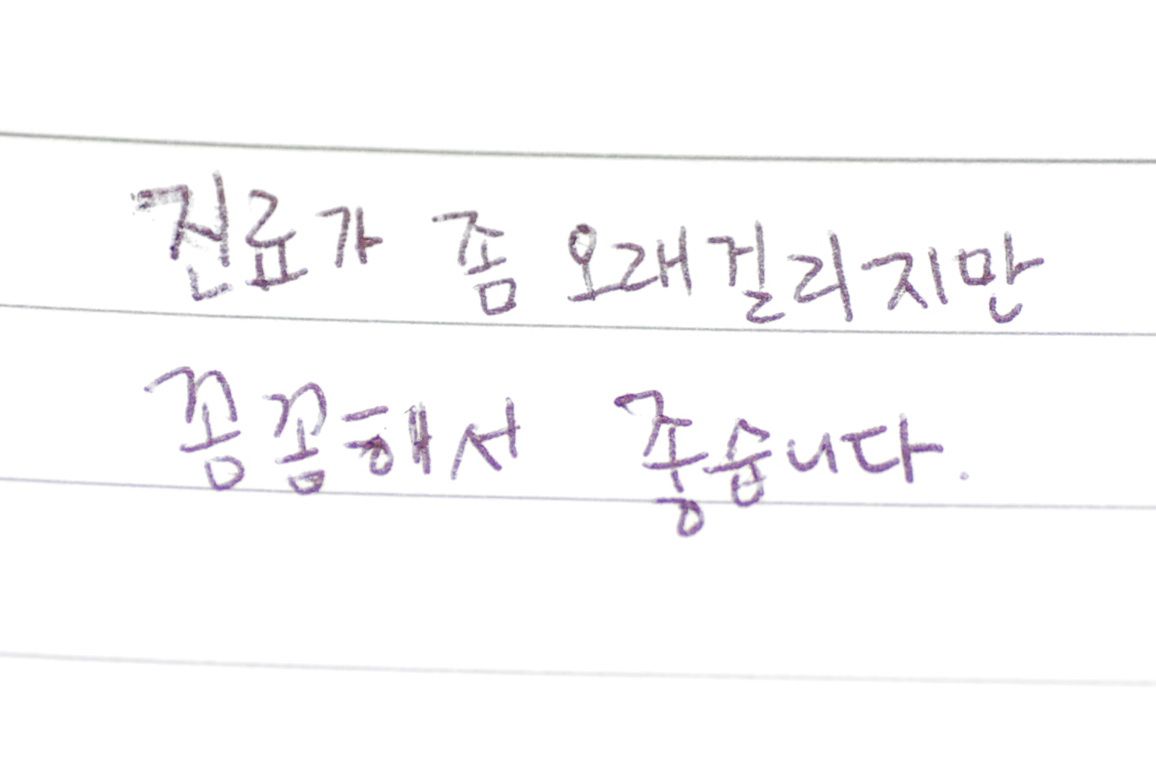 진료가 좀 오래걸리지만
꼼꼼해서 좋습니다.